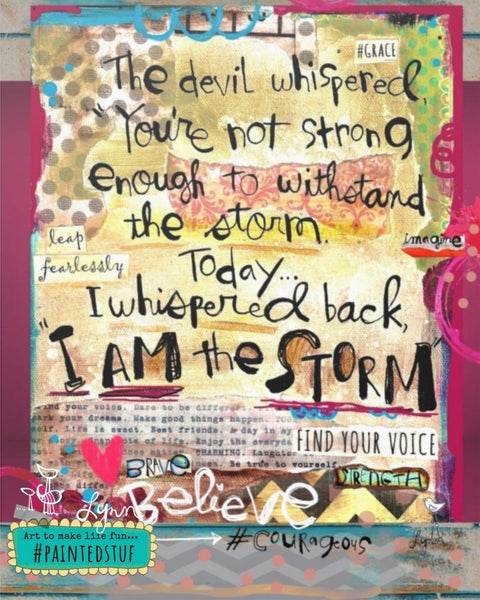 #GRACE
The devil whispered,
"You're not strong
enough to withstand
the storm.
leap
fearlessly
imagine
Today...
I whispered back,
"I AM the STORM"
find your voice. Dare to be differen
ark your dreams. Make good things happen.
elf. Life is sweet. Be friends. A day is my
of life. Enjoy the everyda
CHARMING. Laughter
Be true to yourself.
FIND YOUR VOICE
BRAVE
STRENGTH
Lynn
Believe
Art to make life fun...
#PAINTEDSTUF
#COURAGEOUS
Lynn